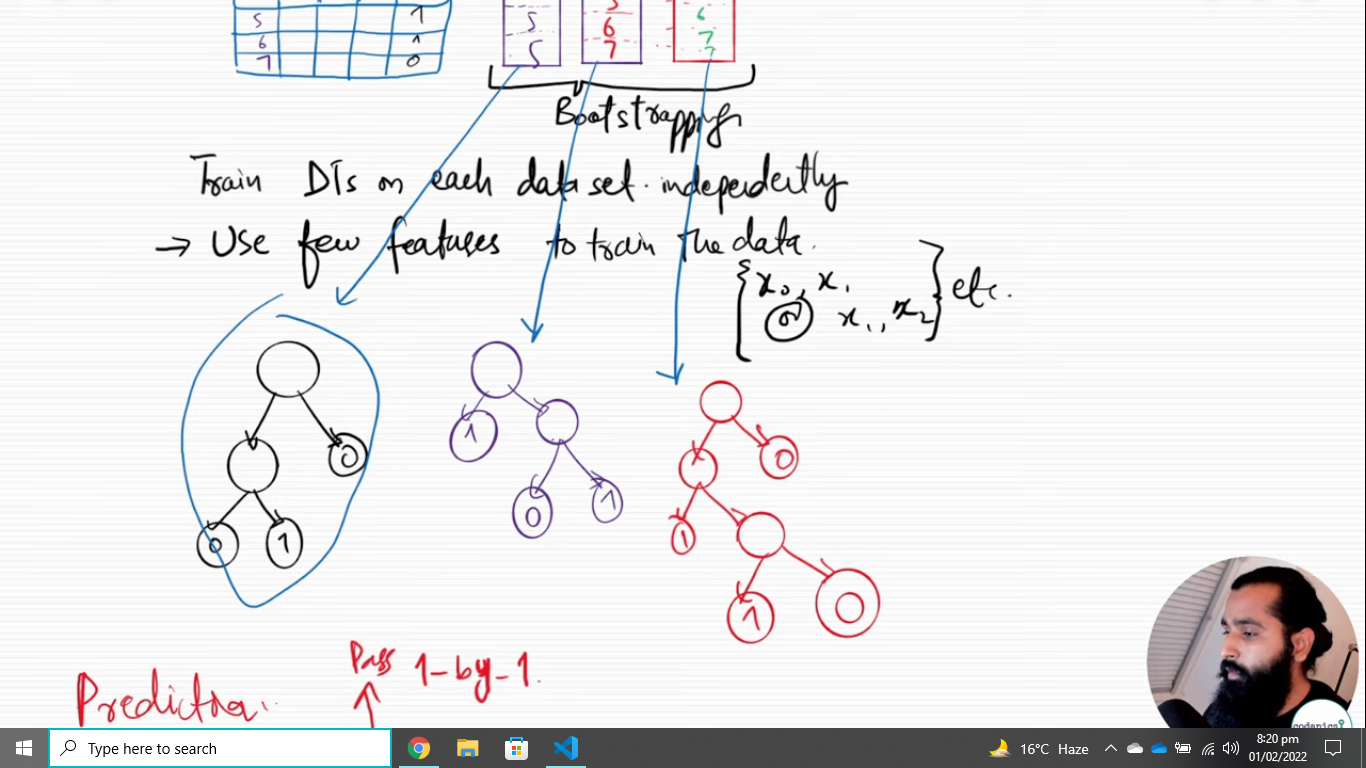 5 1 5 5 6
6 1 5 6 7
7 0 5 7 7
Bootstrapping
Train DTs on each data set. independently
→ Use few features to train the data.
{x₀, x₁
or x₁, x₂} etc.
1 0
0 1 0 1 1 0
1 0
Pass 1-by-1.
Prediction.
codanics
Type here to search
16°C Haze
8:20 pm
01/02/2022